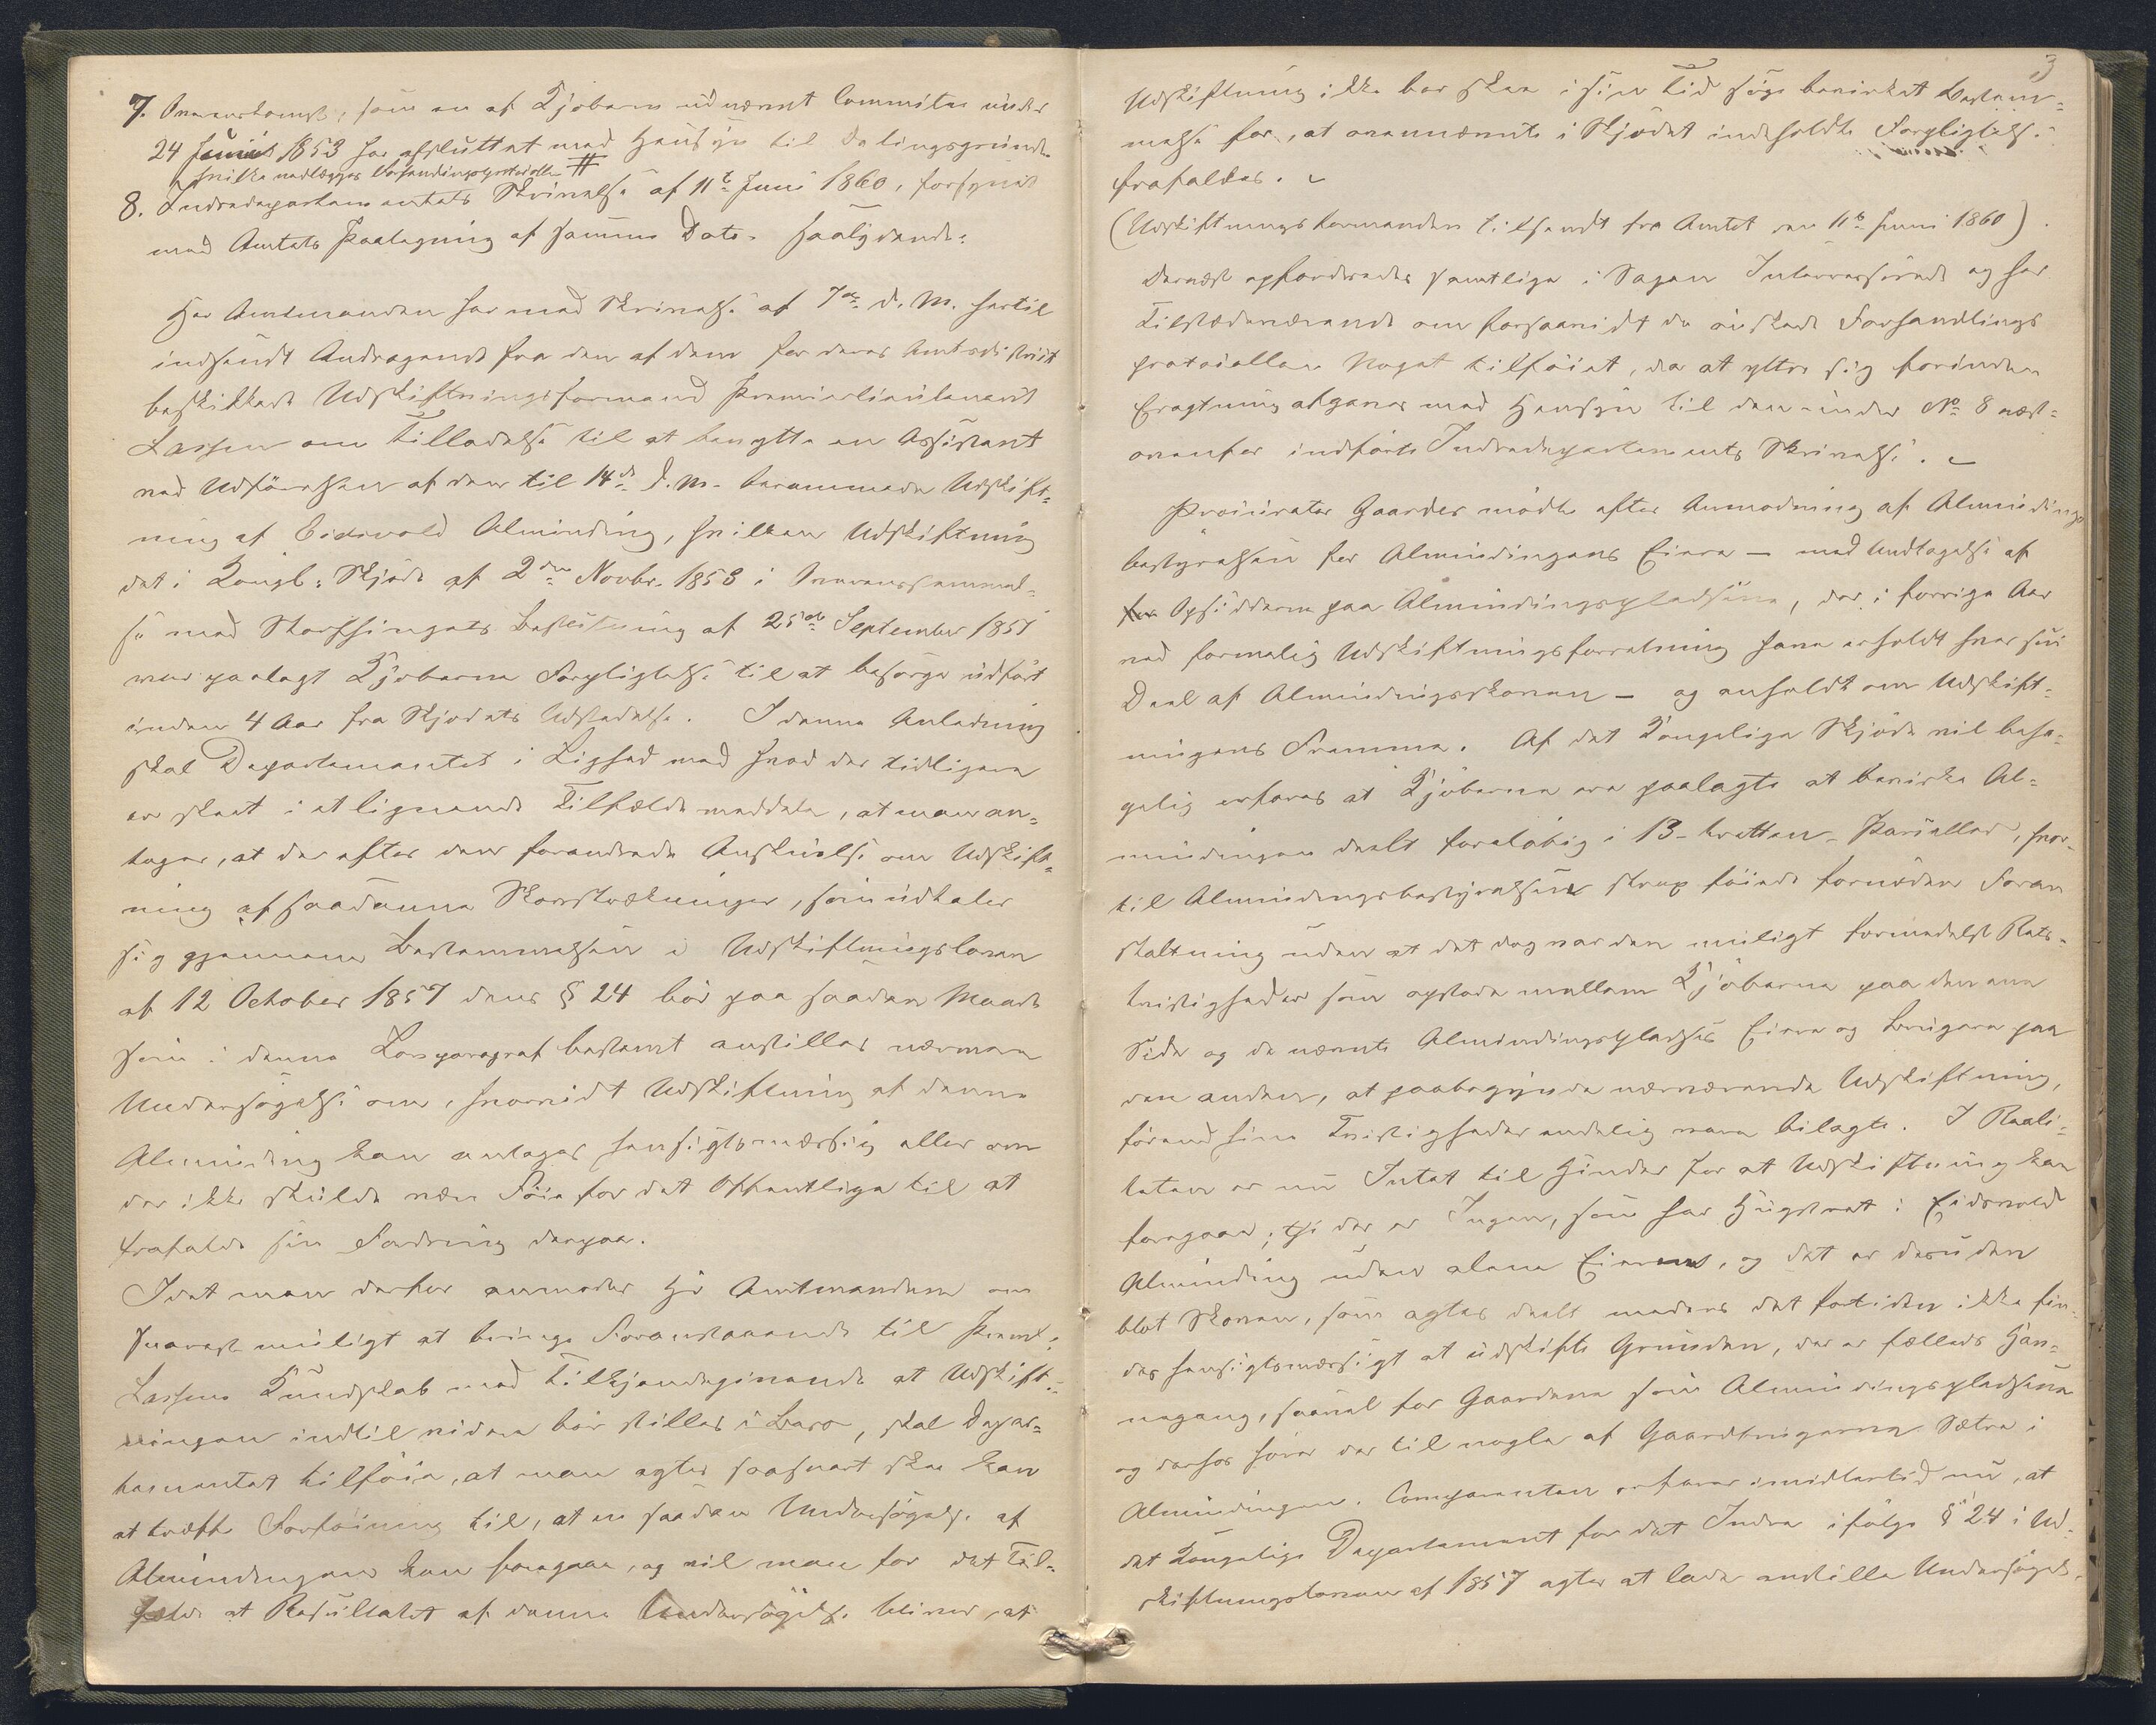 7. Overeenkomst, som en af Kjøberne udnævnt Committee under
24 Junii 1853 har afsluttet med Hensyn til Delingsgrunde
hvilke vedlægges Forhandlingsprotocollen #
8. Indredepartementets Skrivelse af 11te Juni 1860, forsynet
med Amtets Paategning af samme Dato. saalydende:
Hr Amtmanden har med Skrivelse af 7de d. M. hertil
indsendt Andragende fra den af dem for deres Amtsdistrikt
beskikkede Udskiftningsformand Premierlieutenant
Lassen om Tilladelse til at benytte en Assistent
ved Udførelsen af den til 14de d. M. berammede Udskift=
ning af Eidsvold Alminding, hvilken Udskiftning
det i Kongl: Skjøde af 2den Novbr. 1853 i Overenstemmel=
se med Storthingets Beslutning af 25de September 1851
var paalagt Kjøberne Forpligtelse til at besørge udført
inden 4 Aar fra Skjødets Udstedelse. I denne Anledning
skal Departementet i Lighed med hvad der tidligere
er skeet i et lignende Tilfælde meddele, at man an=
tager, at der efter den forandrede Anskuelse om Udskift=
ning af saadanne Skovstrækninger, som udtaler
sig gjennem Bestemmelsen i Udskiftningsloven
af 12 October 1857 dens § 24 bør paa saadan Maade
som i denne Lovparagraf bestemt anstilles nærmere
Undersøgelse om, hvorvidt Udskiftning af denne
Alminding kan antages hensigtsmæssig eller om
der ikke skulde være Føie for det Offentlige til at
frafalde sin Fordring derpaa.
Idet man derfor anmoder Hr Amtmanden om
snarest muligt at bringe Foranstaaende til Prmlt:
Lassens Kundskab med Tilkjendegivende at Udskift=
ningen indtil videre bør stilles i Bero, skal Depar=
tementet tilføie, at man agter saasnart skee kan
at træffe Forføining til, at en saadan Undersøgelse af
Almindingen kan foregaae, og vil man for det Til=
fælde at Resultatet af denne Undersøgelse bliver, at
3
Udskiftning ikke bør skee i sin Tid søge bevirket Bestem=
melse for, at ovennævnte i Skjødet indeholdte Forpligtelse
frafaldes.
(Udskiftningsformanden tilsendt fra Amtet den 11te Juni 1860).
Dernæst opfordredes samtlige i Sagen Interesserende og her
Tilstedeværende om forsaavidt de ønskede Forhandlings
protocollen Noget tilføiet, da at yttre sig forinden
Eragtning afgives med Hensyn til den under No 8 næst=
ovenfor indførte Indredepartements Skrivelse.
Procurator Gaarder mødte efter Anmodning af Almindings
bestyrelsen for Almindingens Eiere – med Undtagelse af
Opsidderne paa Almindingspladsene, der i forrige Aar
ved formelig Udskiftningsforretning have erholdt hver sin
Deel af Almindingsskoven – og anholdt om Udskift=
ningens Fremme. Af det Kongelige Skjøde vil beha=
gelig erfares at Kjøberne ere paalagte at bevirke Al=
mindingen deelt foreløbig i 13 – tretten – Parseller, hvor=
til Almindingsbestyrelsen strax føiede fornøden Foran
staltning uden at det dog var den muligt formedelst Rets=
tvistigheder som opstode mellem Kjøberne paa den ene
Side og de nævnte Almindingspladses Eiere og Brugere paa
den anden, at paabegynde nærværende Udskiftning,
førend hine Tvistigheder endelig vare bilagte. I Reali=
teten er nu Intet til Hinder for at Udskiftning kan
foregaae; thi der er Ingen, som har Hugstret i Eidsvold
Alminding uden alene Eierens, og det er desuden
blot Skoven, som agtes deelt medens det for tiden ikke fin=
des hensigtsmæssigt at udskifte Grunden, der er fælleds Hav=
negang, saavel for Gaardene som Almindingspladsene
og derfor høre der til nogle af Gaardbrugerne Sætre i
Almindingen. Comparenten erfarer imidlertid nu, at
det Kongelige Departement for det Indre ifølge § 24 i Ud=
skiftningsloven af 1857 agter at lade anstille Undersøgelse